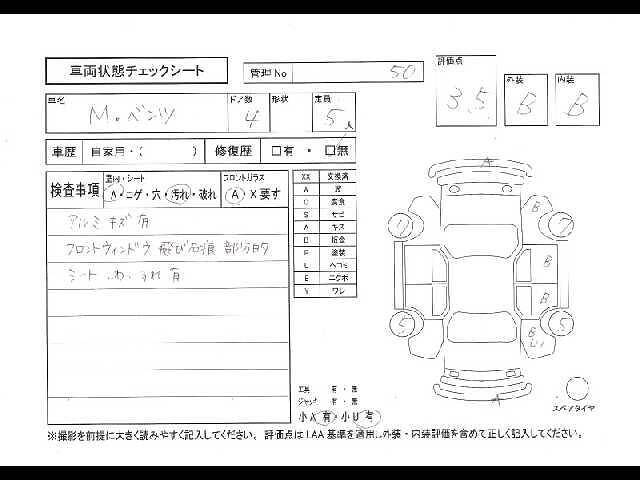 車両状態チェックシート
管理No 50
評価点 3.5
外装 B
内装 B
車名 M。ベンツ
ドア数 4
形状
定員 5人
車歴 自家用・( )
修復歴 □有・□無
検査事項
室内・シート
A・コゲ・穴・汚れ・破れ
フロントガラス
A・X要す
アルミキズ有
フロントウィンドウ 飛び石痕 部分的
シート しわ、すれ 有
XX 交換済
A
C 腐食
S サビ
A キズ
B 板金
P 塗装
U ヘコミ
E エクボ
Y ワレ
工具 有・無
ジャッキ 有・無
小A 有・小U 有
A
B
7
7
B
B
5
5
B
U1
A
スペアタイヤ
※撮影を前提に大きく読みやすく記入してください。評価点はIAA基準を適用し外装・内装評価を含めて正しく記入してください。